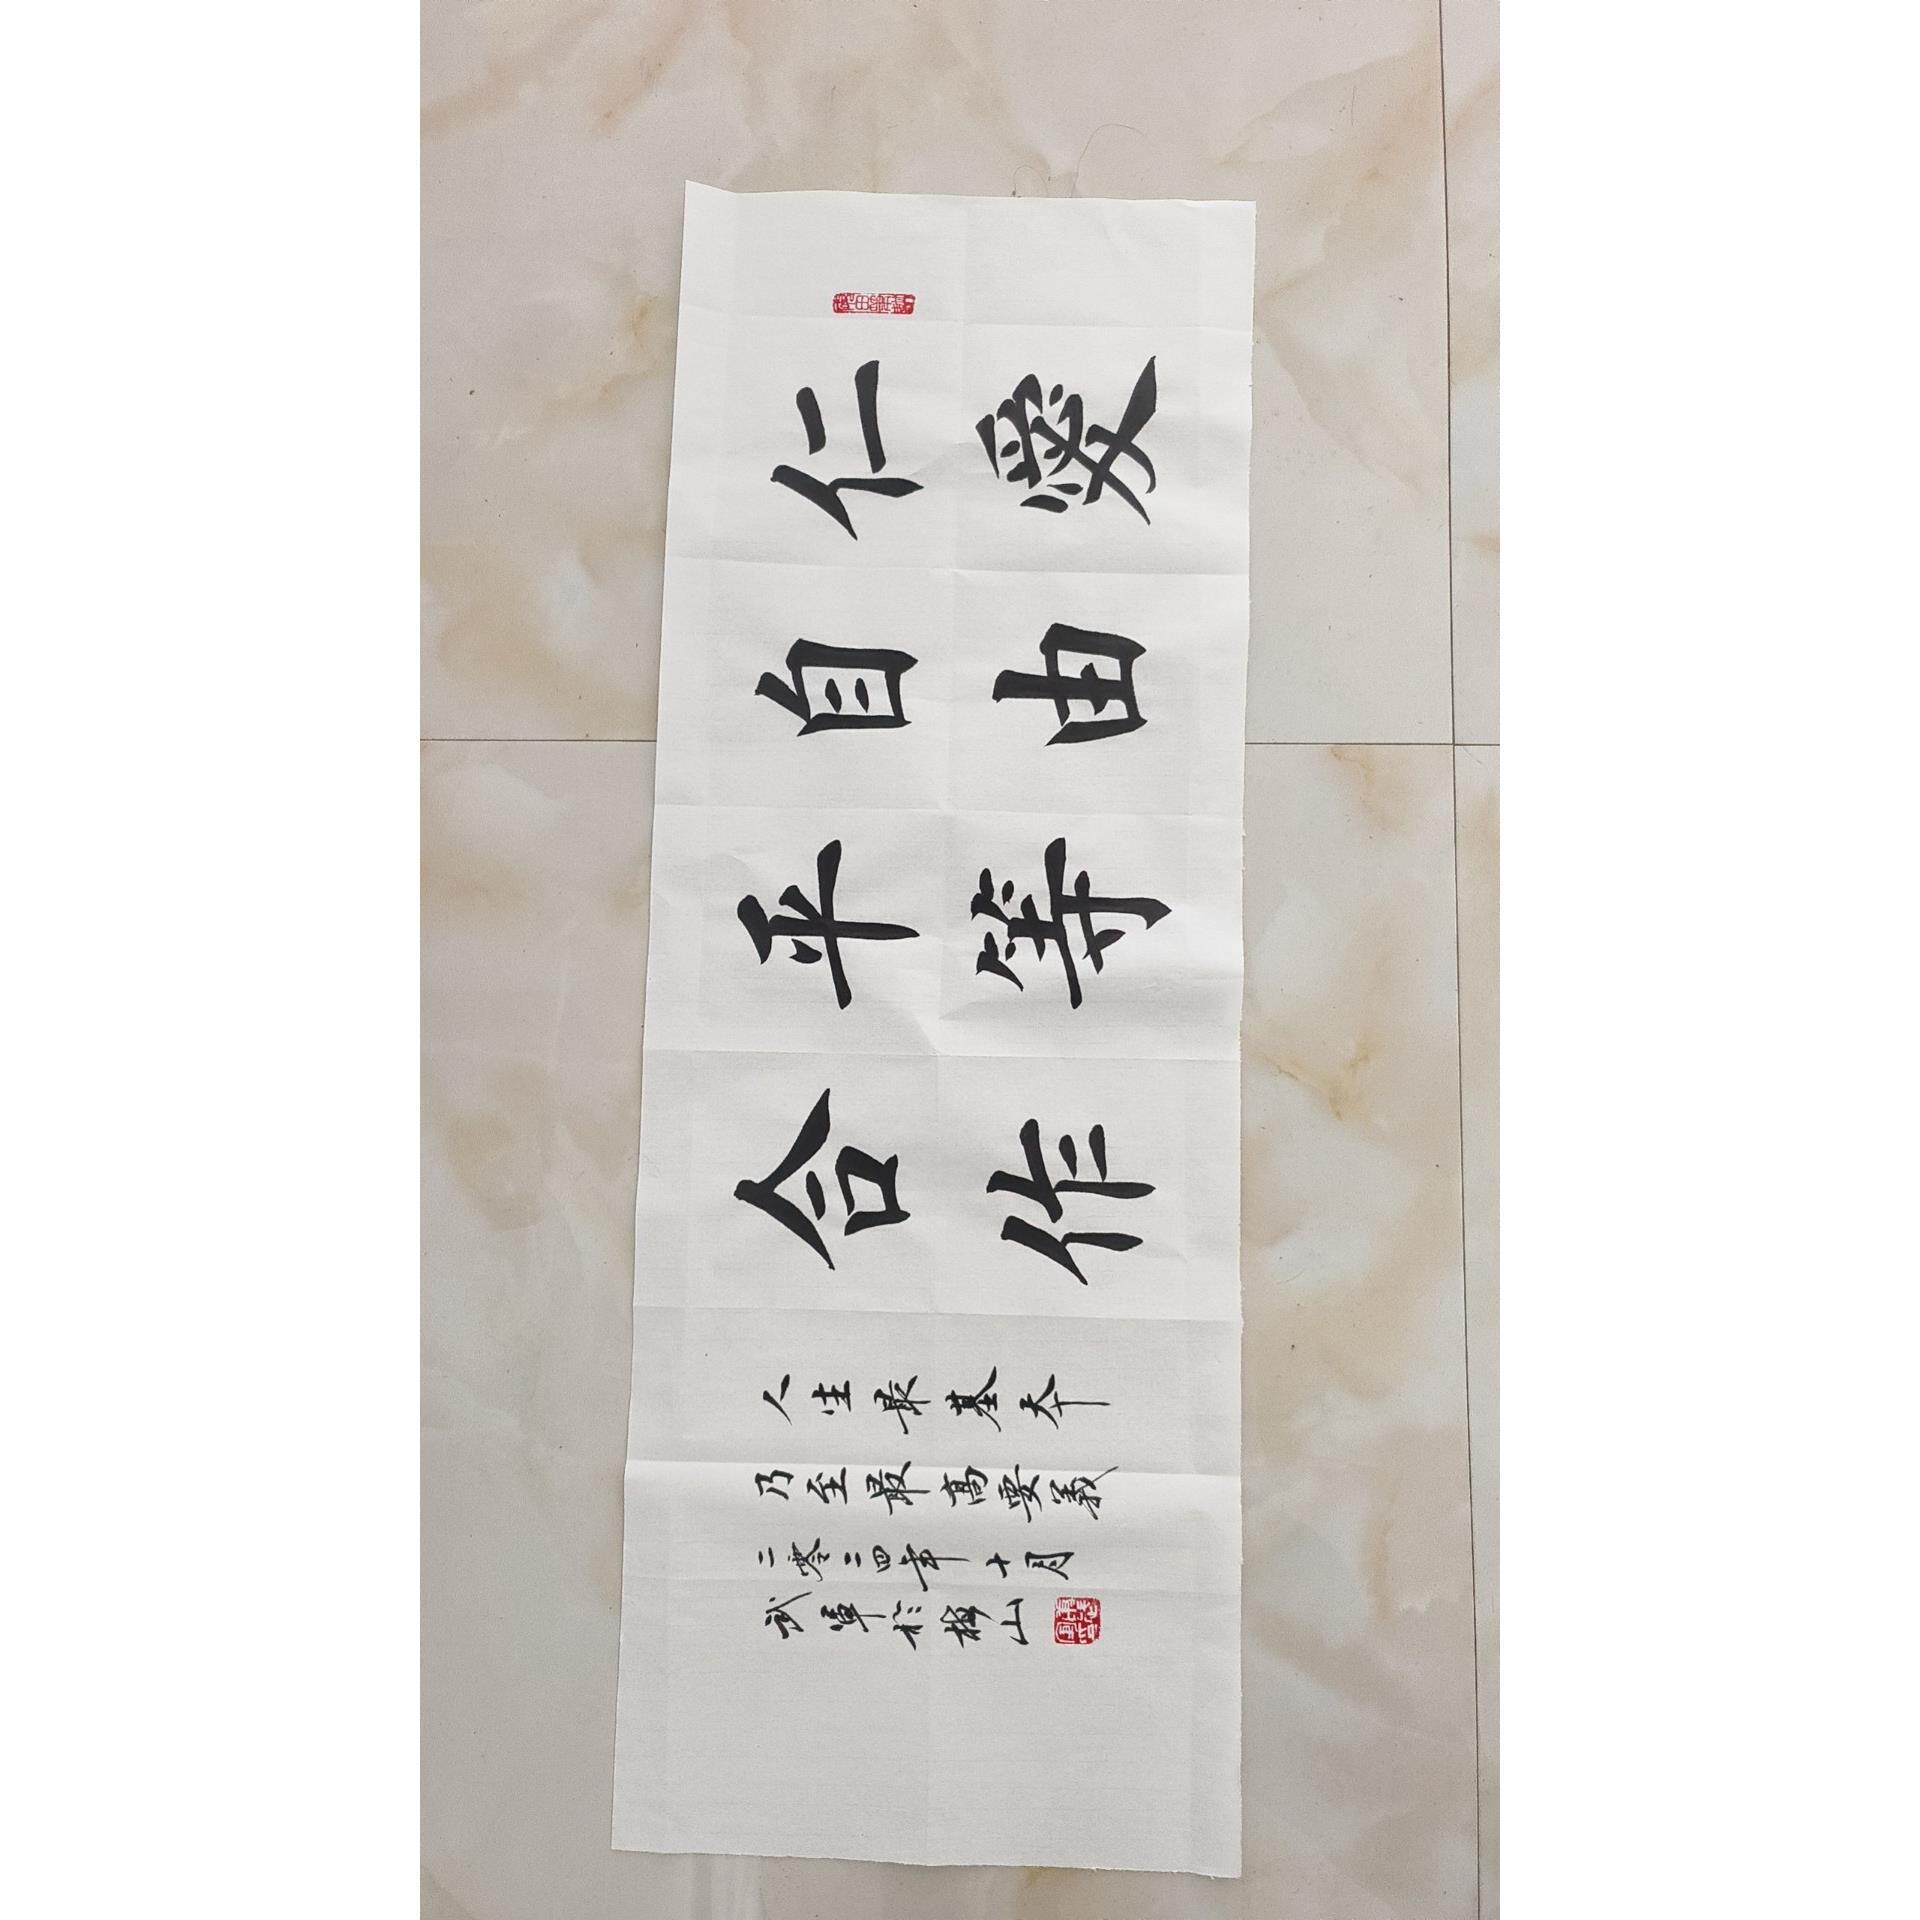 仁愛
自由
平等
合作
人生最基本
乃至最高要義
二零二四年十月
武軍於梅山